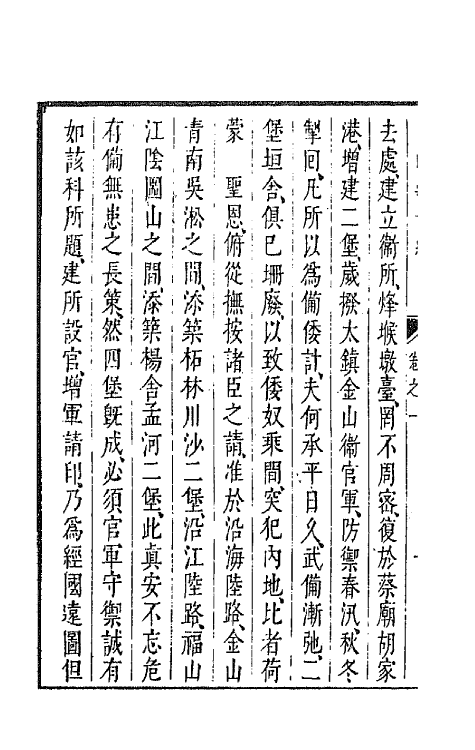 去處、建立衞所、烽堠墩臺、罔不周密、復於蔡廟胡家
港、增建二堡、歲撥太鎮金山衞官軍、防禦春汛、秋冬
掣回、凡所以爲備倭計、夫何承平日久、武備漸弛、二
堡垣舍、俱已坍廢、以致倭奴乘間、突犯內地、比者荷
蒙　聖恩、俯從撫按諸臣之請、准於沿海陸路、金山
青南吳淞之間、添築柘林川沙二堡、沿江陸路、福山
江陰圌山之間、添築楊舍孟河二堡、此眞安不忘危
有備無患之長策、然四堡旣成、必須官軍守禦、誠有
如該科所題、建所設官、增軍請印、乃爲經國遠圖、但
卷之一